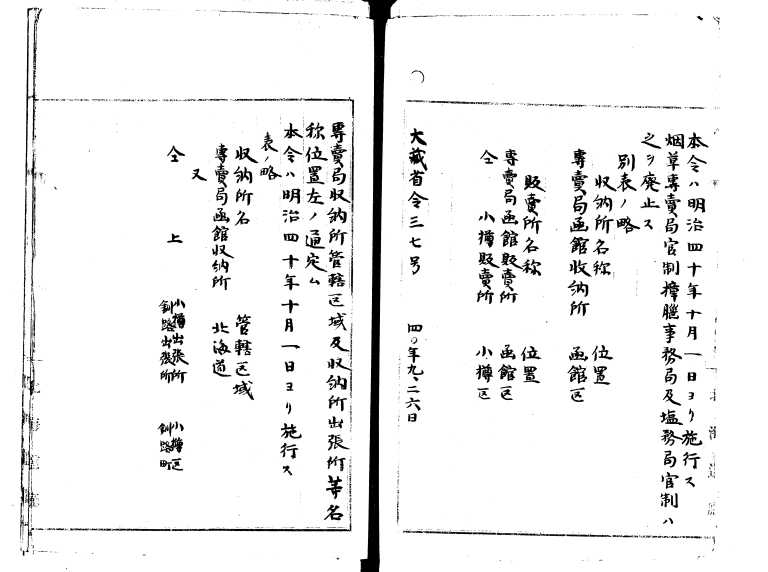 本令ハ明治四十年十月一日ヨリ施行ス
烟草専賣局官制樟脳事務局及塩務局官制ハ
之ヲ廃止ス
別表ノ略
収納所名称　位置
専賣局函館收納所　函館区
販賣所名称　位置
専賣局函館販賣所　函館区
仝　小樽販賣所　小樽区
大藏省令三七号　四〇年九、二六日
専賣局収納所管轄区域及収納所出張所等名
称位置左ノ通定ム
本令ハ明治四十年十月一日ヨリ施行ス
表ノ略
収納所名　管轄区域
専賣局函館収納所　北海道
又
仝上　小樽出張所　小樽区
釧路出張所　釧路町